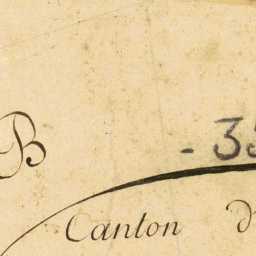 B
- 35
Canton d